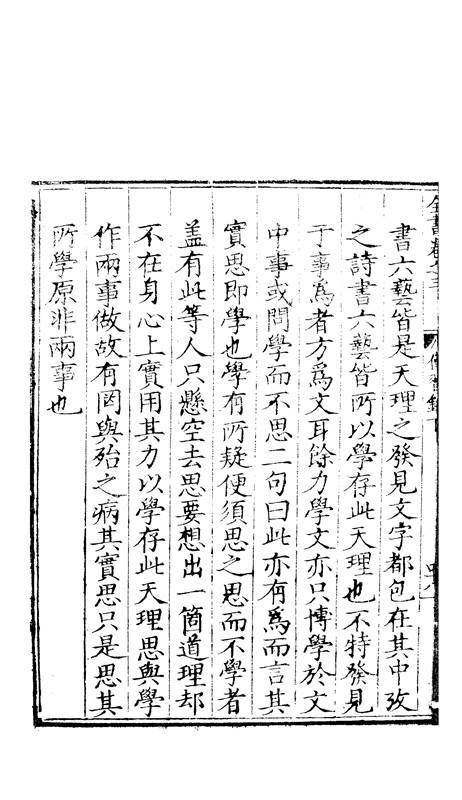 書六藝皆是天理之發見文字都包在其中攷
之詩書六藝皆所以學存此天理也不特發見
于事爲者方爲文耳餘力學文亦只博學於文
中事或問學而不思二句曰此亦有爲而言其
實思即學也學有所疑便須思之思而不學者
盖有此等人只懸空去思要想出一箇道理却
不在身心上實用其力以學存此天理思與學
作兩事做故有罔與殆之病其實思只是思其
所學原非兩事也